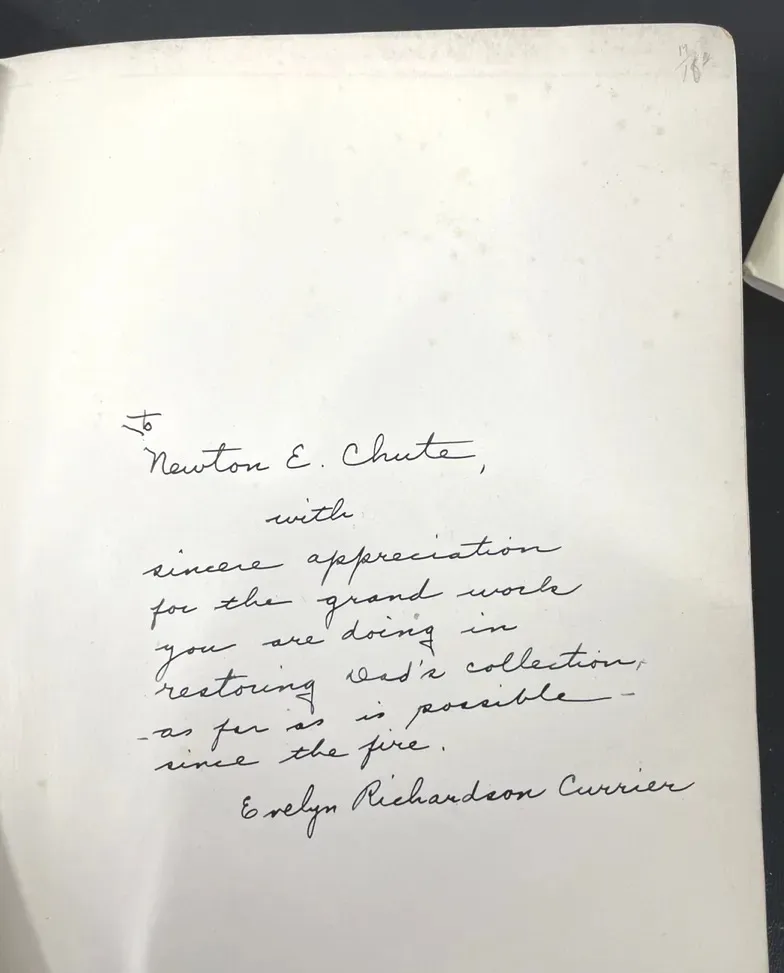 To
Newton E. Chute,
with
sincere appreciation
for the grand work
you are doing in
restoring Dad's collection,
- as far as is possible -
since the fire.
Evelyn Richardson Currier